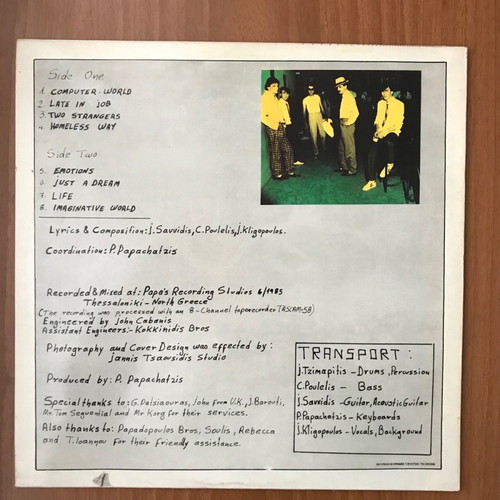 Side One
1. COMPUTER-WORLD
2. LATE IN JOB
3. TWO STRANGERS
4. HOMELESS WAY
Side Two
5. EMOTIONS
6. JUST A DREAM
7. LIFE
8. IMAGINATIVE WORLD
Lyrics & Composition: J. Savvidis, C. Poulelis, J. Kligopoulos.
Coordination: P. Papachatzis
Recorded & Mixed at: Papa's Recording Studios 6/1985
Thessaloniki - North Greece
(The recording was processed with an 8-Channel taperecorder TASCAM-58)
Engineered by John Cabanis
Assistant Engineers:- Kokkinidis Bros
Photography and Cover Design was effected by:
Jannis Tsaousidis Studio
Produced by: P. Papachatzis
Special thanks to: G. Palsiaouras, John from U.K., J. Barouti,
Mr Tom Sequential and Mr Korg for their services.
Also thanks to: Papadopoulos Bros, Soulis, Rebecca
and T. Ioannou for their friendly assistance.
TRANSPORT:
J. Tzimapitis - Drums, Percussion
C. Poulelis - Bass
J. Savvidis - Guitar, Acoustic Guitar
P. Papachatzis - Keyboards
J. Kligopoulos - Vocals, Background